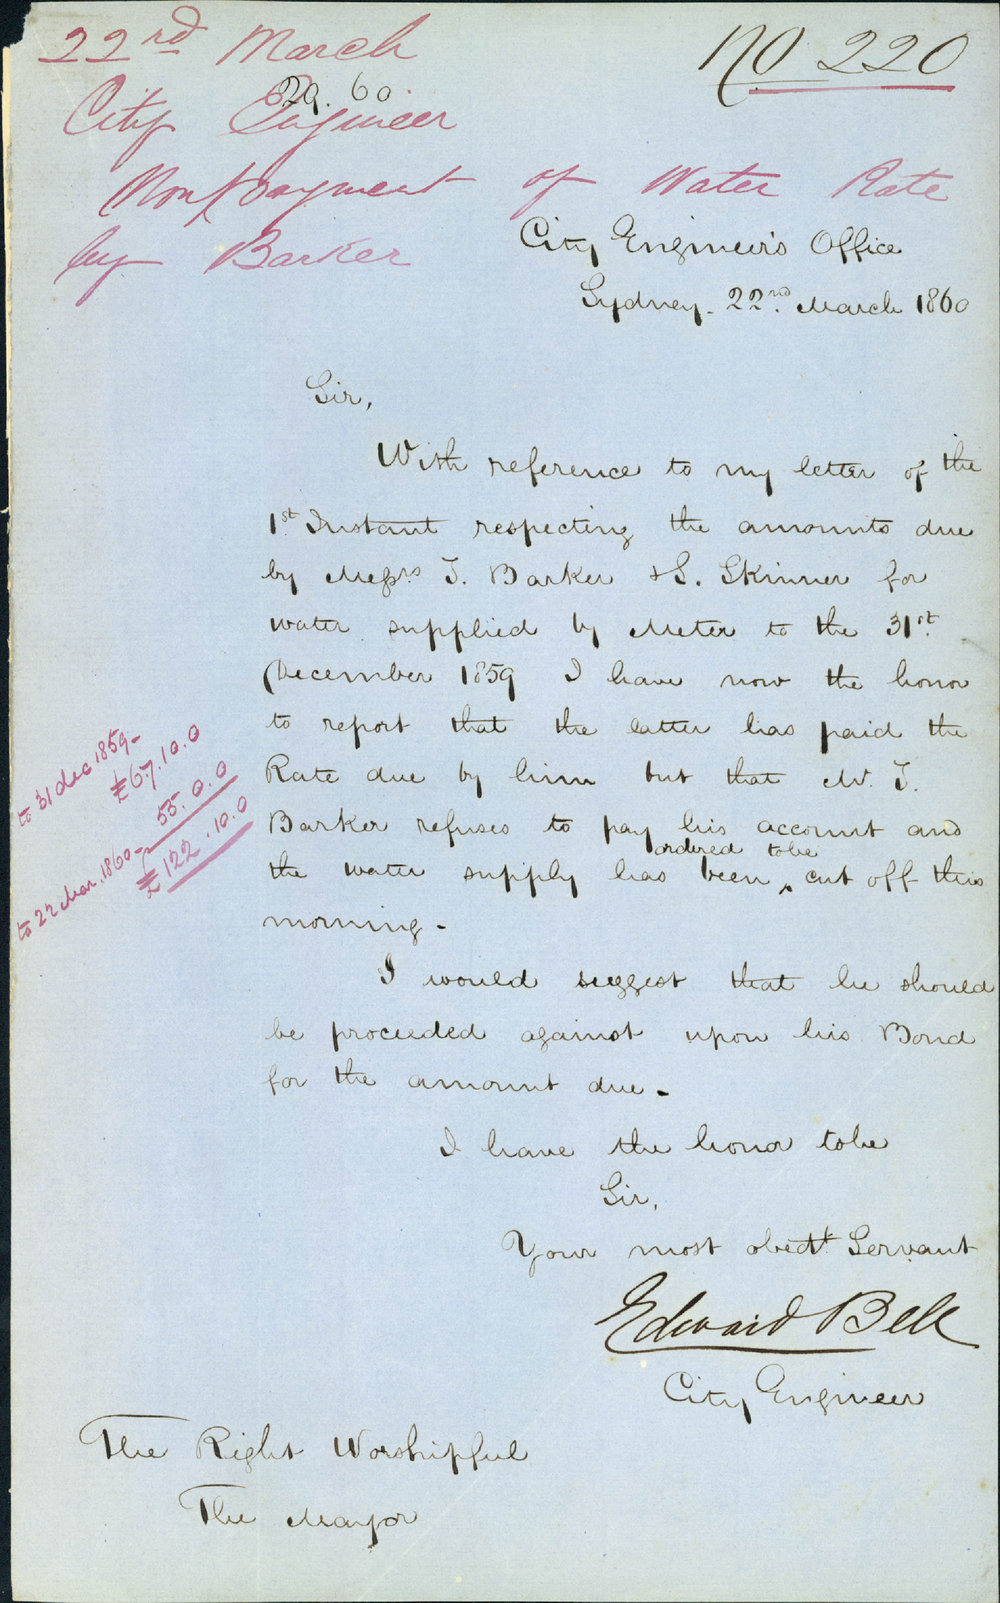 22nd March
No 220
29. 60
City Engineer
Nonpayment of Water Rate
by Barker
City Engineer's Office
Sydney. 22nd March 1860
Sir,
With reference to my letter of the
1st Instant respecting the amounts due
by Messrs T. Barker & S. Skinner for
water supplied by Meter to the 31st
December 1859 I have now the honor
to report that the latter has paid the
Rate due by him but that Mr. T.
Barker refuses to pay his account and
ordered to be
the water supply has been ^ cut off this
morning -
to 31 Dec 1859 -
£67.10.0
to 22 Mar. 1860 - 55.0.0
£122.10.0
I would suggest that he should
be proceeded against upon his Bond
for the amount due -
I have the honor to be
Sir,
Your most obedt. Servant
Edward Bell
City Engineer
The Right Worshipful
The Mayor